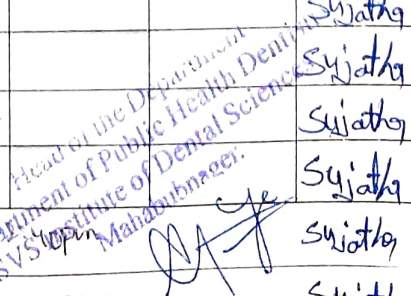 Sujatha
Sujatha
Sujatha
Sujatha
Sujatha
Head of the Department
Department of Public Health Dentistry
SVS Institute of Dental Sciences
Mahabubnager.